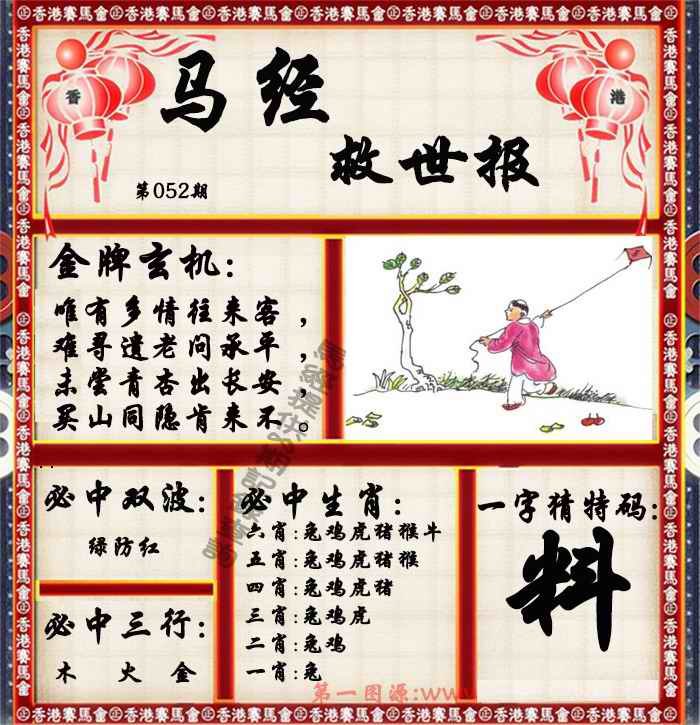 香港賽馬會
香
港
马经
救世报
第052期
金牌玄机:
唯有多情往来客，
难寻遗老问承平，
未尝青杏出长安，
买山同隐肯来不。
必中双波:
绿防红
必中三行:
木 火 金
必中生肖:
六肖:兔鸡虎猪猴牛
五肖:兔鸡虎猪猴
四肖:兔鸡虎猪
三肖:兔鸡虎
二肖:兔鸡
一肖:兔
一字猜特码:
料
第一图源:www.